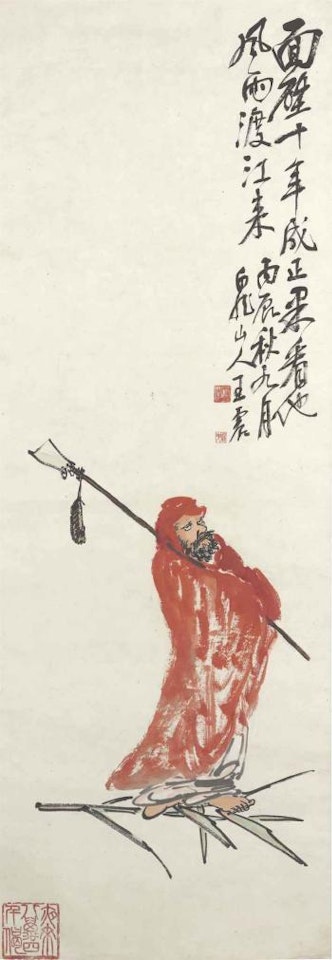 面壁十年成正果看他
風雨渡江来
丙辰秋九月
白龍山人王震